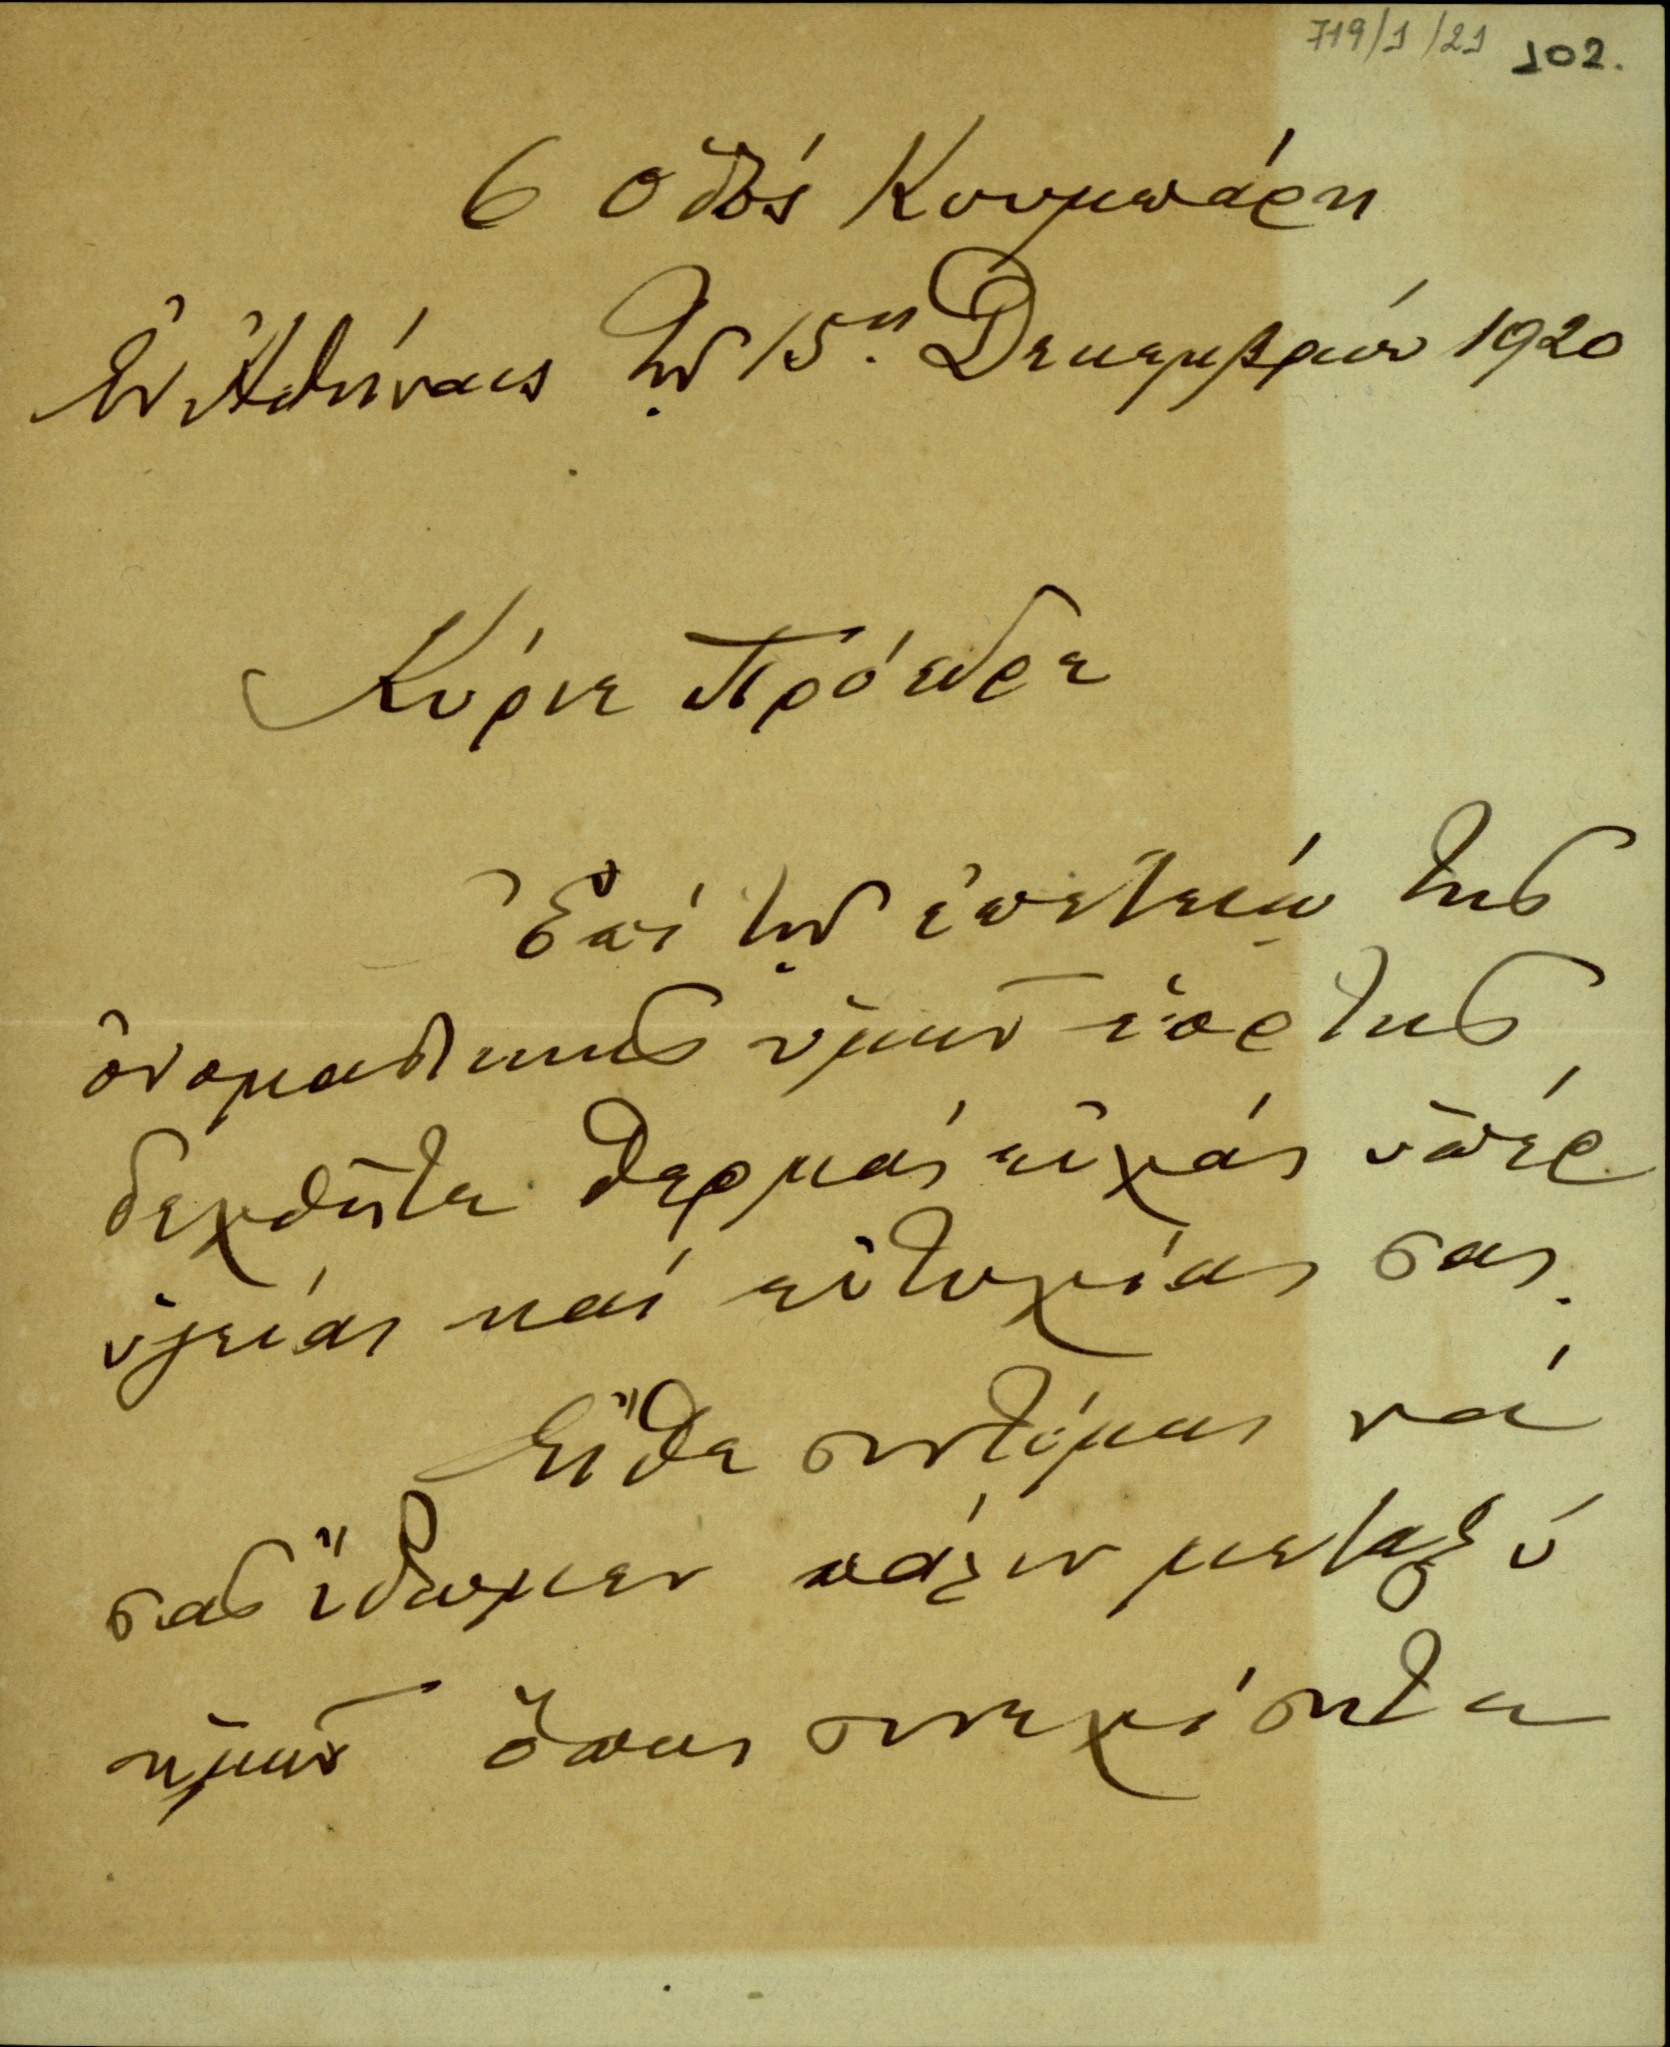 719/1/21 102.
6 ὁδός Κουμπάρη
Ἐν Ἀθήναις τῇ 15ῃ. Δεκεμβρίου 1920
Κύριε Πρόεδρε
Ἐπὶ τῇ ἐπετείῳ τῆς
ὀνομαστικῆς ὑμῶν ἑορτῆς,
δεχθῆτε θερμάς εὐχάς ὑπέρ
ὑγείας καί εὐτυχίας σας.
Εἴθε συντόμως νά
σας ἴδωμεν πάλιν μεταξύ
ἡμῶν ὅπως συνεχίσητε